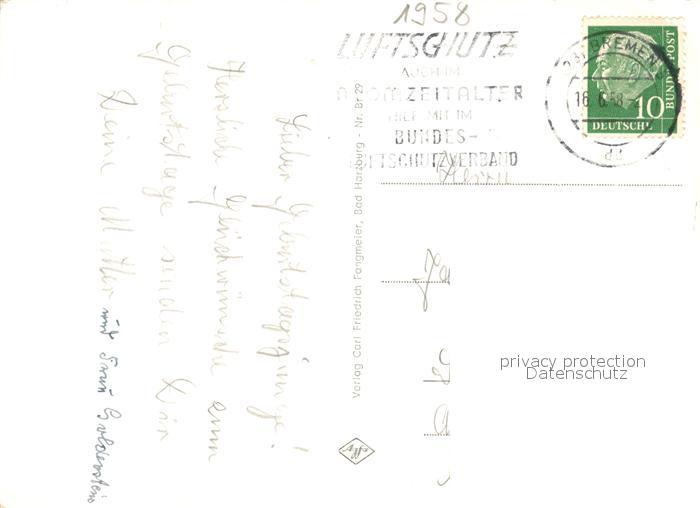 1958
LUFTSCHUTZ
AUCH IM
ATOMZEITALTER
HILF MIT IM
BUNDES-
LUFTSCHUTZVERBAND
(23) BREMEN
16.6.58
DEUTSCHE
BUNDESPOST
10
Herrn
privacy protection
Datenschutz
Verlag Carl Friedrich Fangmeier, Bad Harzburg - Nr. Br 29
Lieber Geburtstagsjunge!
Herzliche Glückwünsche zum
Geburtstage senden Dir
Deine Mutter
und Frau Goldenstein